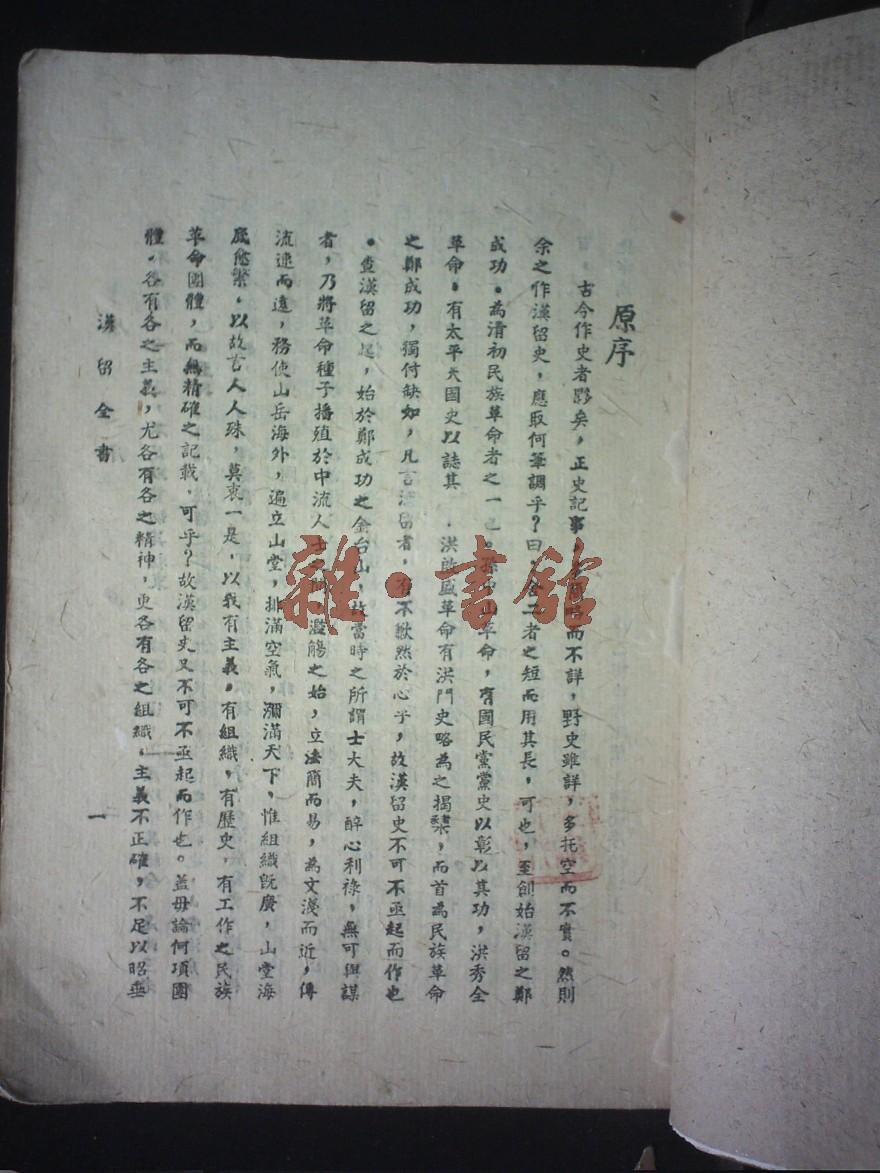 原序
古今作史者夥矣，正史記事，簡略而不詳，野史雖詳，多托空而不實。然則
余之作漢留史，應取何筆調乎？曰，舍二者之短而用其長，可也，至創始漢留之鄭
成功。為清初民族革命者之一也。孫中山革命，有國民黨黨史以彰以其功，洪秀全
革命。有太平天国史以誌其．洪啟盛革命有洪門史略為之揭櫫，而首為民族革命
之鄭成功，獨付缺如，凡言漢留者，有不歉然於心乎，故漢留史不可不亟起而作也
。查漢留之起，始於鄭成功之金台山，故當時之所謂士大夫，醉心利祿，無可與謀
者，乃將革命種子播殖於中流人士之，濫觴之始，立法簡而易，為文淺而近，傳
流速而遠，務使山岳海外，遍立山堂，排滿空氣，瀰滿天下，惟組織既廣，山堂海
底愈繁。以故言人人殊，莫衷一是，以我有主義。有組織，有歷史，有工作之民族
革命團體，而無精確之記載，可乎？故漢留史又不可不亟起而作也。蓋毋論何項團
體。各有各之主義，尤各有各之精神，更各有各之組織。主義不正確，不足以昭垂
漢留全書
一
雜·書館